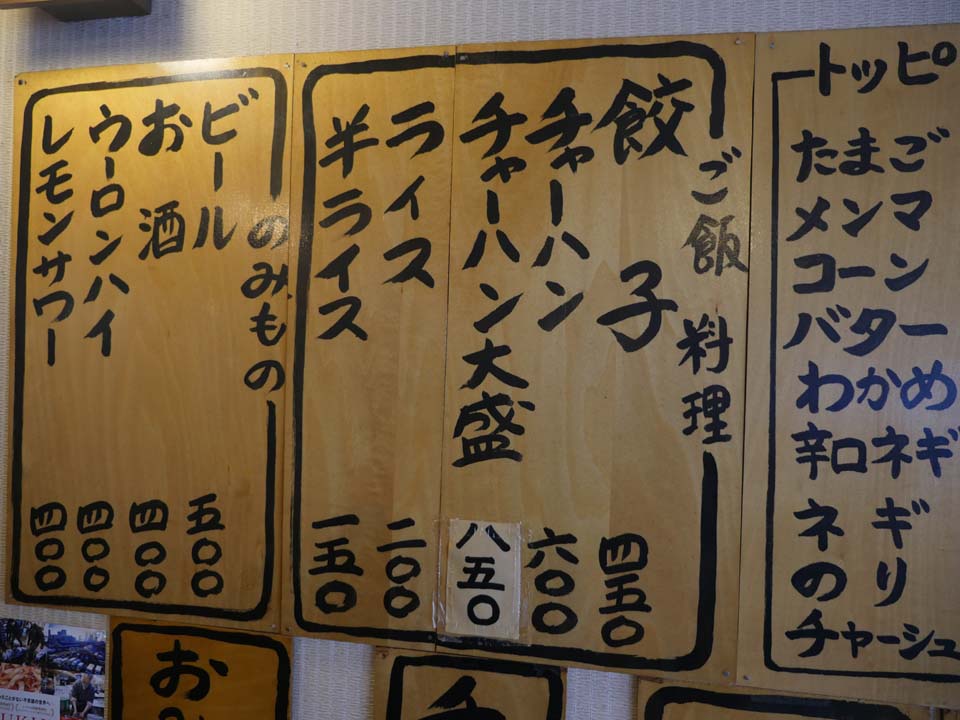 トッピ
たまご
メンマ
コーン
バター
わかめ
辛口ネギ
ネギ
のり
チャーシュ
ご飯料理
餃子 四五〇
チャーハン 六〇〇
チャーハン大盛 八五〇
ライス 二〇〇
半ライス 一五〇
のみもの
ビール 五〇〇
お酒 四〇〇
ウーロンハイ 四〇〇
レモンサワー 四〇〇
お